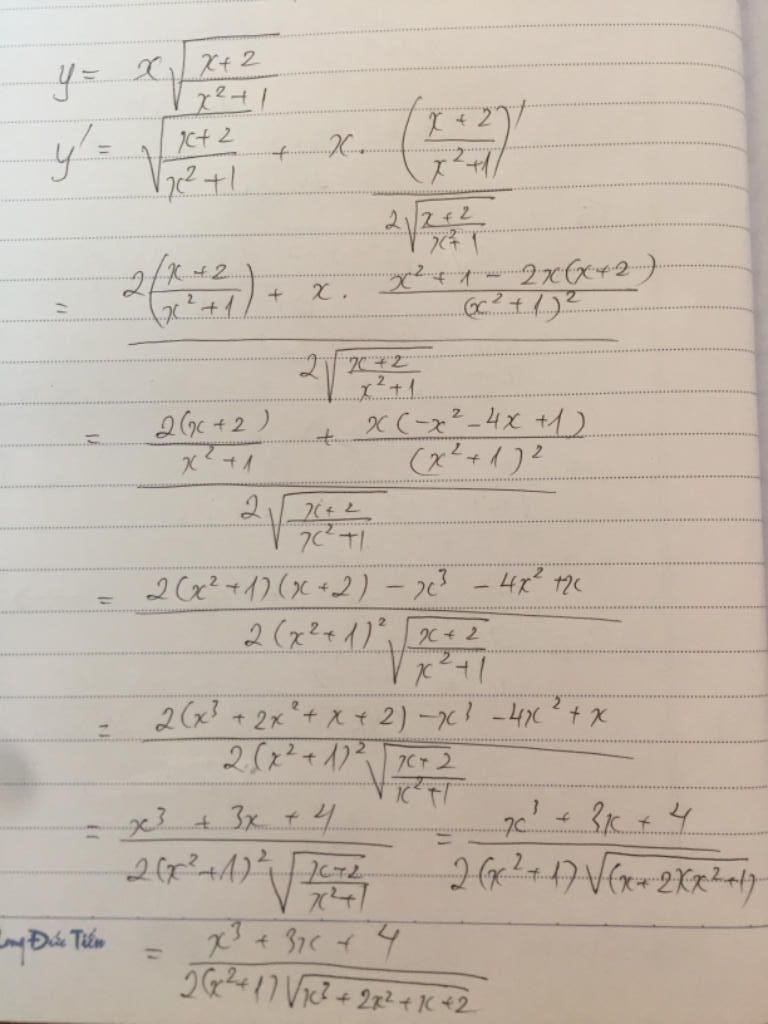 y = x√((x+2)/(x²+1))
y' = √((x+2)/(x²+1)) + x · ((x+2)/(x²+1))' / (2√((x+2)/(x²+1)))
= (2((x+2)/(x²+1)) + x · (x²+1-2x(x+2))/(x²+1)²) / (2√((x+2)/(x²+1)))
= (2(x+2)/(x²+1) + x(-x²-4x+1)/(x²+1)²) / (2√((x+2)/(x²+1)))
= (2(x²+1)(x+2) - x³ - 4x² + x) / (2(x²+1)²√((x+2)/(x²+1)))
= (2(x³+2x²+x+2) - x³ - 4x² + x) / (2(x²+1)²√((x+2)/(x²+1)))
= (x³+3x+4) / (2(x²+1)²√((x+2)/(x²+1))) = (x³+3x+4) / (2(x²+1)√((x+2)(x²+1)))
Đức Tiến
= (x³+3x+4) / (2(x²+1)√(x³+2x²+x+2))